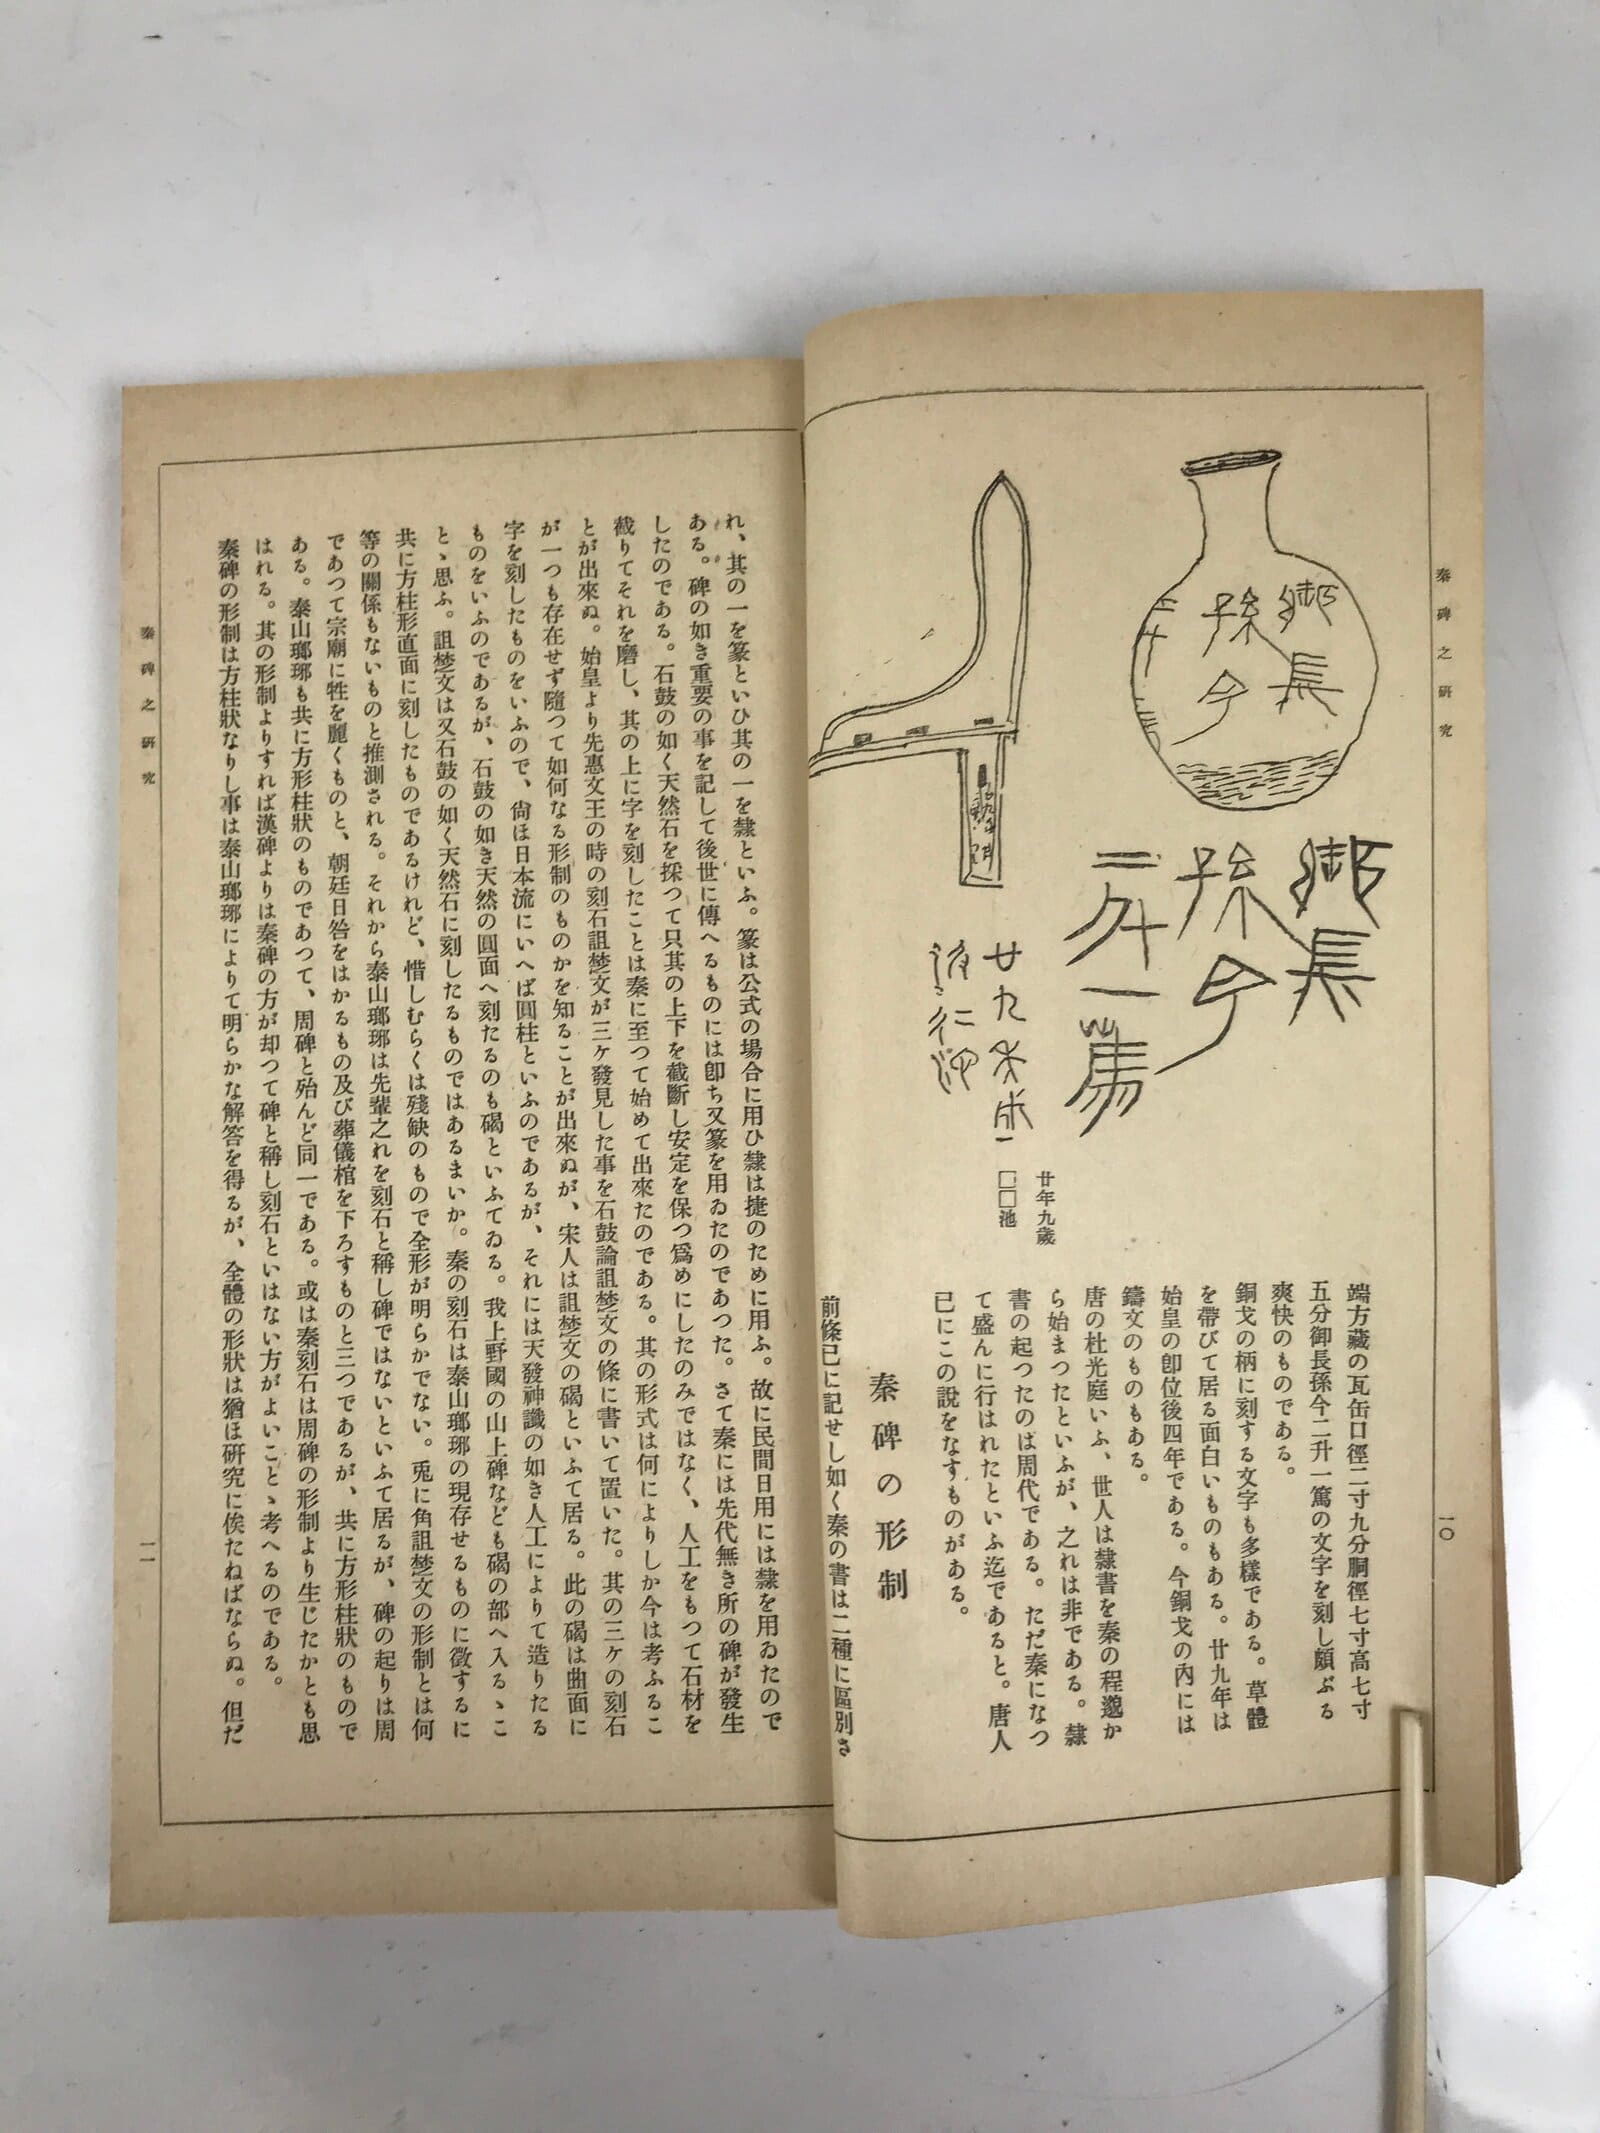 秦碑之研究
一〇
御長
孫今
二升一篤
廿年九歲
□□池
端方藏の瓦缶口徑二寸九分胴徑七寸高七寸
五分御長孫今二升一篤の文字を刻し頗ぶる
爽快のものである。
銅戈の柄に刻する文字も多樣である。草體
を帶びて居る面白いものもある。廿九年は
始皇の卽位後四年である。今銅戈の內には
鑄文のものもある。
唐の杜光庭いふ、世人は隸書を秦の程邈か
ら始まつたといふが、之れは非である。隸
書の起つたのば周代である。ただ秦になつ
て盛んに行はれたといふ迄であると。唐人
已にこの說をなすものがある。
秦碑の形制
前條已に記せし如く秦の書は二種に區別さ
れ、其の一を篆といひ其の一を隸といふ。篆は公式の場合に用ひ隸は捷のために用ふ。故に民間日用には隸を用ゐたので
ある。碑の如き重要の事を記して後世に傳へるものには卽ち又篆を用ゐたのであつた。さて秦には先代無き所の碑が發生
したのである。石鼓の如く天然石を採つて只其の上下を截斷し安定を保つ爲めにしたのみではなく、人工をもつて石材を
截りてそれを磨し、其の上に字を刻したことは秦に至つて始めて出來たのである。其の形式は何によりしか今は考ふるこ
とが出來ぬ。始皇より先惠文王の時の刻石詛楚文が三ケ發見した事を石鼓論詛楚文の條に書いて置いた。其の三ケの刻石
が一つも存在せず隨つて如何なる形制のものかを知ることが出來ぬが、宋人は詛楚文の碣といふて居る。此の碣は曲面に
字を刻したものをいふので、尙ほ日本流にいへば圓柱といふのであるが、それには天發神讖の如き人工によりて造りたる
ものをいふのであるが、石鼓の如き天然の圓面へ刻たるのも碣といふてゐる。我上野國の山上碑なども碣の部へ入るゝこ
とゝ思ふ。詛楚文は又石鼓の如く天然石に刻したるものではあるまいか。秦の刻石は泰山瑯琊の現存せるものに徵するに
共に方柱形直面に刻したものであるけれど、惜しむらくは殘缺のもので全形が明らかでない。兎に角詛楚文の形制とは何
等の關係もないものと推測される。それから泰山瑯琊は先輩之れを刻石と稱し碑ではないといふて居るが、碑の起りは周
であつて宗廟に牲を麗くものと、朝廷日咎をはかるもの及び葬儀棺を下ろすものと三つであるが、共に方形柱狀のもので
ある。泰山瑯琊も共に方形柱狀のものであつて、周碑と殆んど同一である。或は秦刻石は周碑の形制より生じたかとも思
はれる。其の形制よりすれば漢碑よりは秦碑の方が却つて碑と稱し刻石といはない方がよいことゝ考へるのである。
秦碑の形制は方柱狀なりし事は泰山瑯琊によりて明らかな解答を得るが、全體の形狀は猶ほ硏究に俟たねばならぬ。但だ
秦碑之硏究
一一